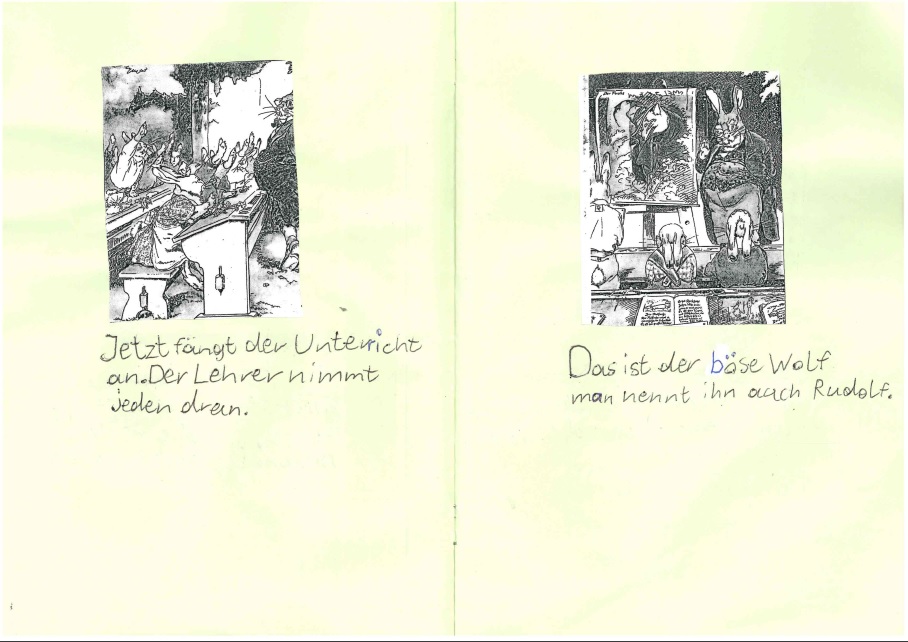 Jetzt fängt der Unterricht
an. Der Lehrer nimmt
jeden dran.
Der Fuchs
Das ist der böse Wolf
man nennt ihn auch Rudolf.